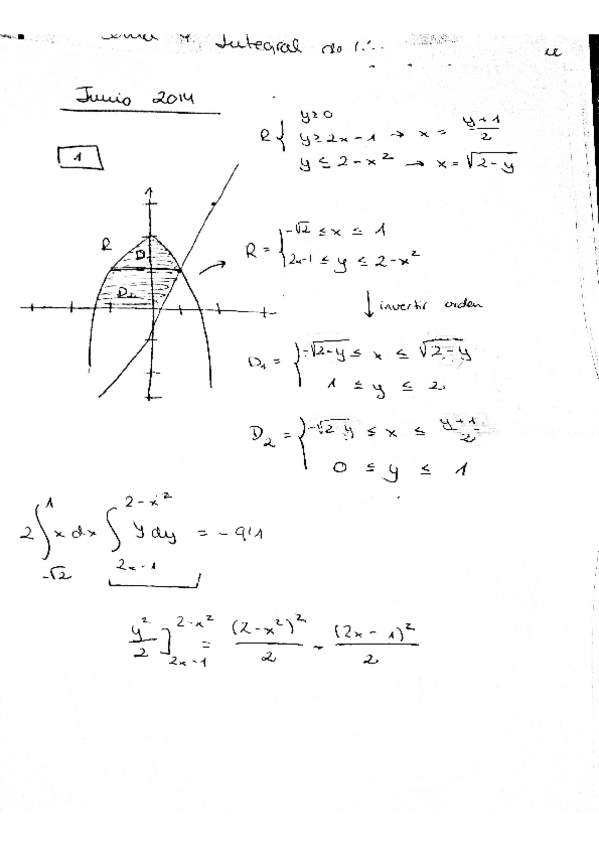 Tema 4. Integral
Junio 2014
1
R { y≥0
y≥2x-1 → x = (y+1)/2
y ≤ 2-x² → x = √(2-y)
R
D₁
D₂
R = { -√2 ≤ x ≤ 1
2x-1 ≤ y ≤ 2-x²
↓ invertir orden
D₁ = { -√(2-y) ≤ x ≤ √(2-y)
1 ≤ y ≤ 2
D₂ = { -√(2-y) ≤ x ≤ (y+1)/2
0 ≤ y ≤ 1
2 ∫_{-√2}^{1} x dx ∫_{2x-1}^{2-x²} y dy = -9'1
y²/2 ]_{2x-1}^{2-x²} = (2-x²)²/2 - (2x-1)²/2